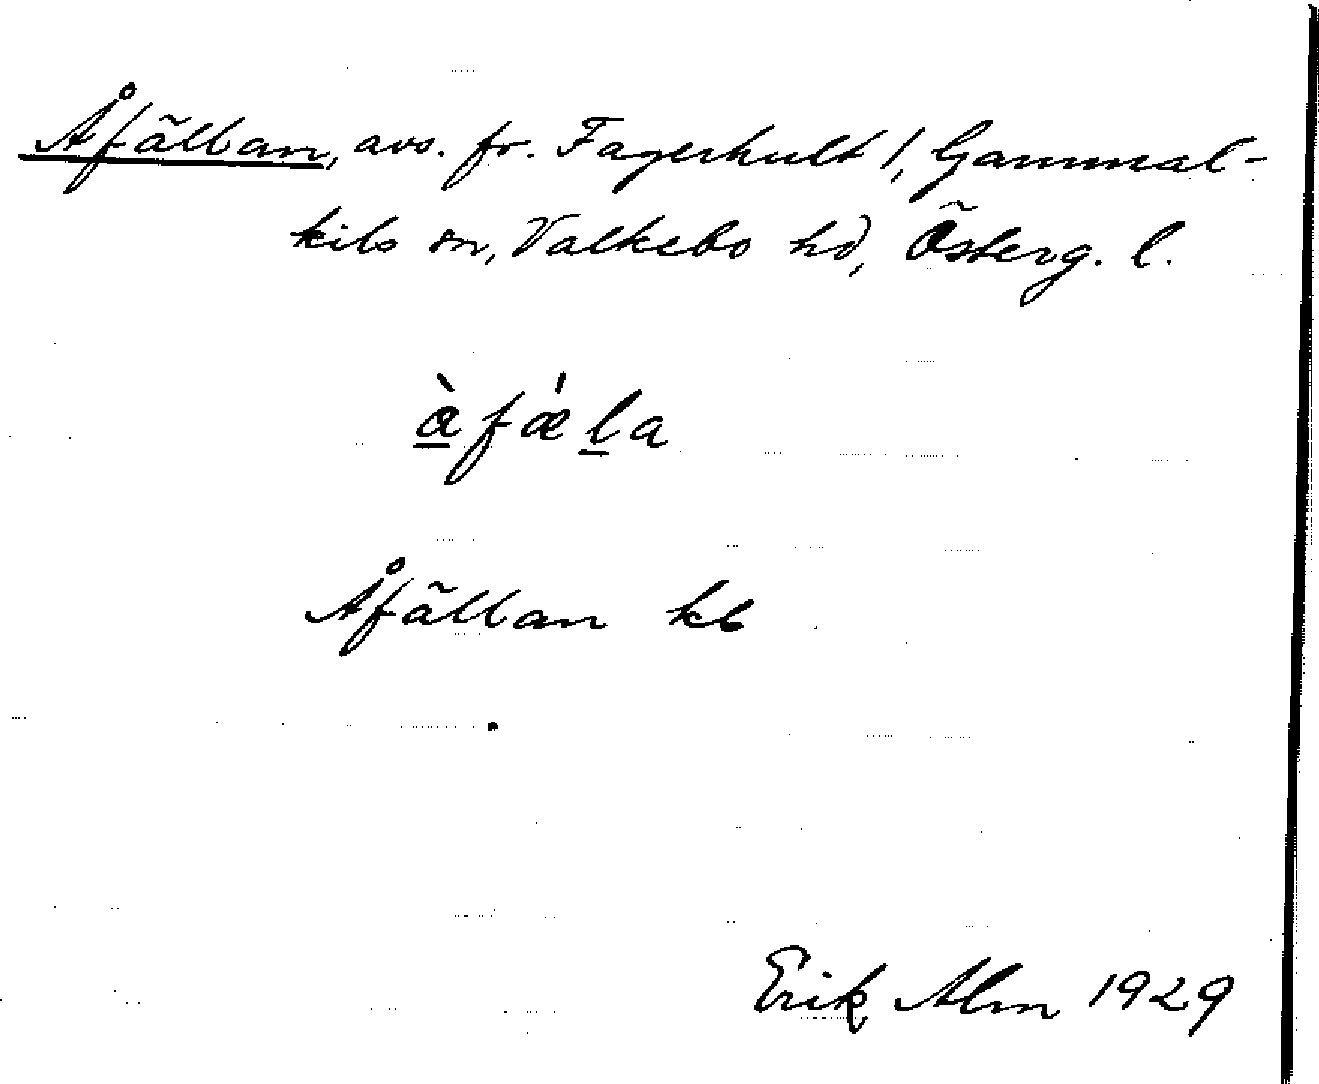 Åfällan, avs. fr. Fagerhult 1, Gammal-
kils sn, Valkebo hd, Österg. l.
à̱fǽḻa
Åfällan kb
Erik Alm 1929